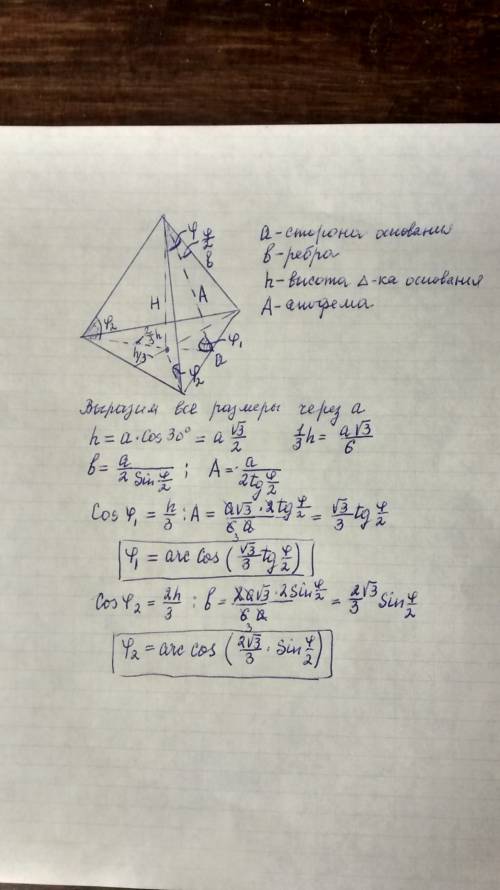 φ
φ/2
в
H
A
φ₂
2/3 h
h/3
φ₁
a
φ₂
a - сторона основания
в - ребра
h - высота Δ-ка основания
A - апофема
Выразим все размеры через a
h = a · cos 30° = a √3/2    1/3 h = a√3/6
в = a/(2 Sin φ/2) ; A = a/(2 tg φ/2)
Cos φ₁ = h/3 : A = (a√3 · 2 tg φ/2)/(6 a) 3 = √3/3 tg φ/2
φ₁ = arc cos (√3/3 tg φ/2)
Cos φ₂ = 2h/3 : в = (2a√3 · 2 Sin φ/2)/(6 a) 3 = 2√3/3 Sin φ/2
φ₂ = arc cos (2√3/3 · Sin φ/2)